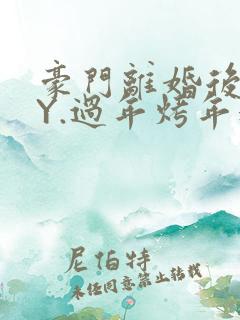 豪門離婚後
Y.過年烤年
尼伯特
未经同意禁止转载